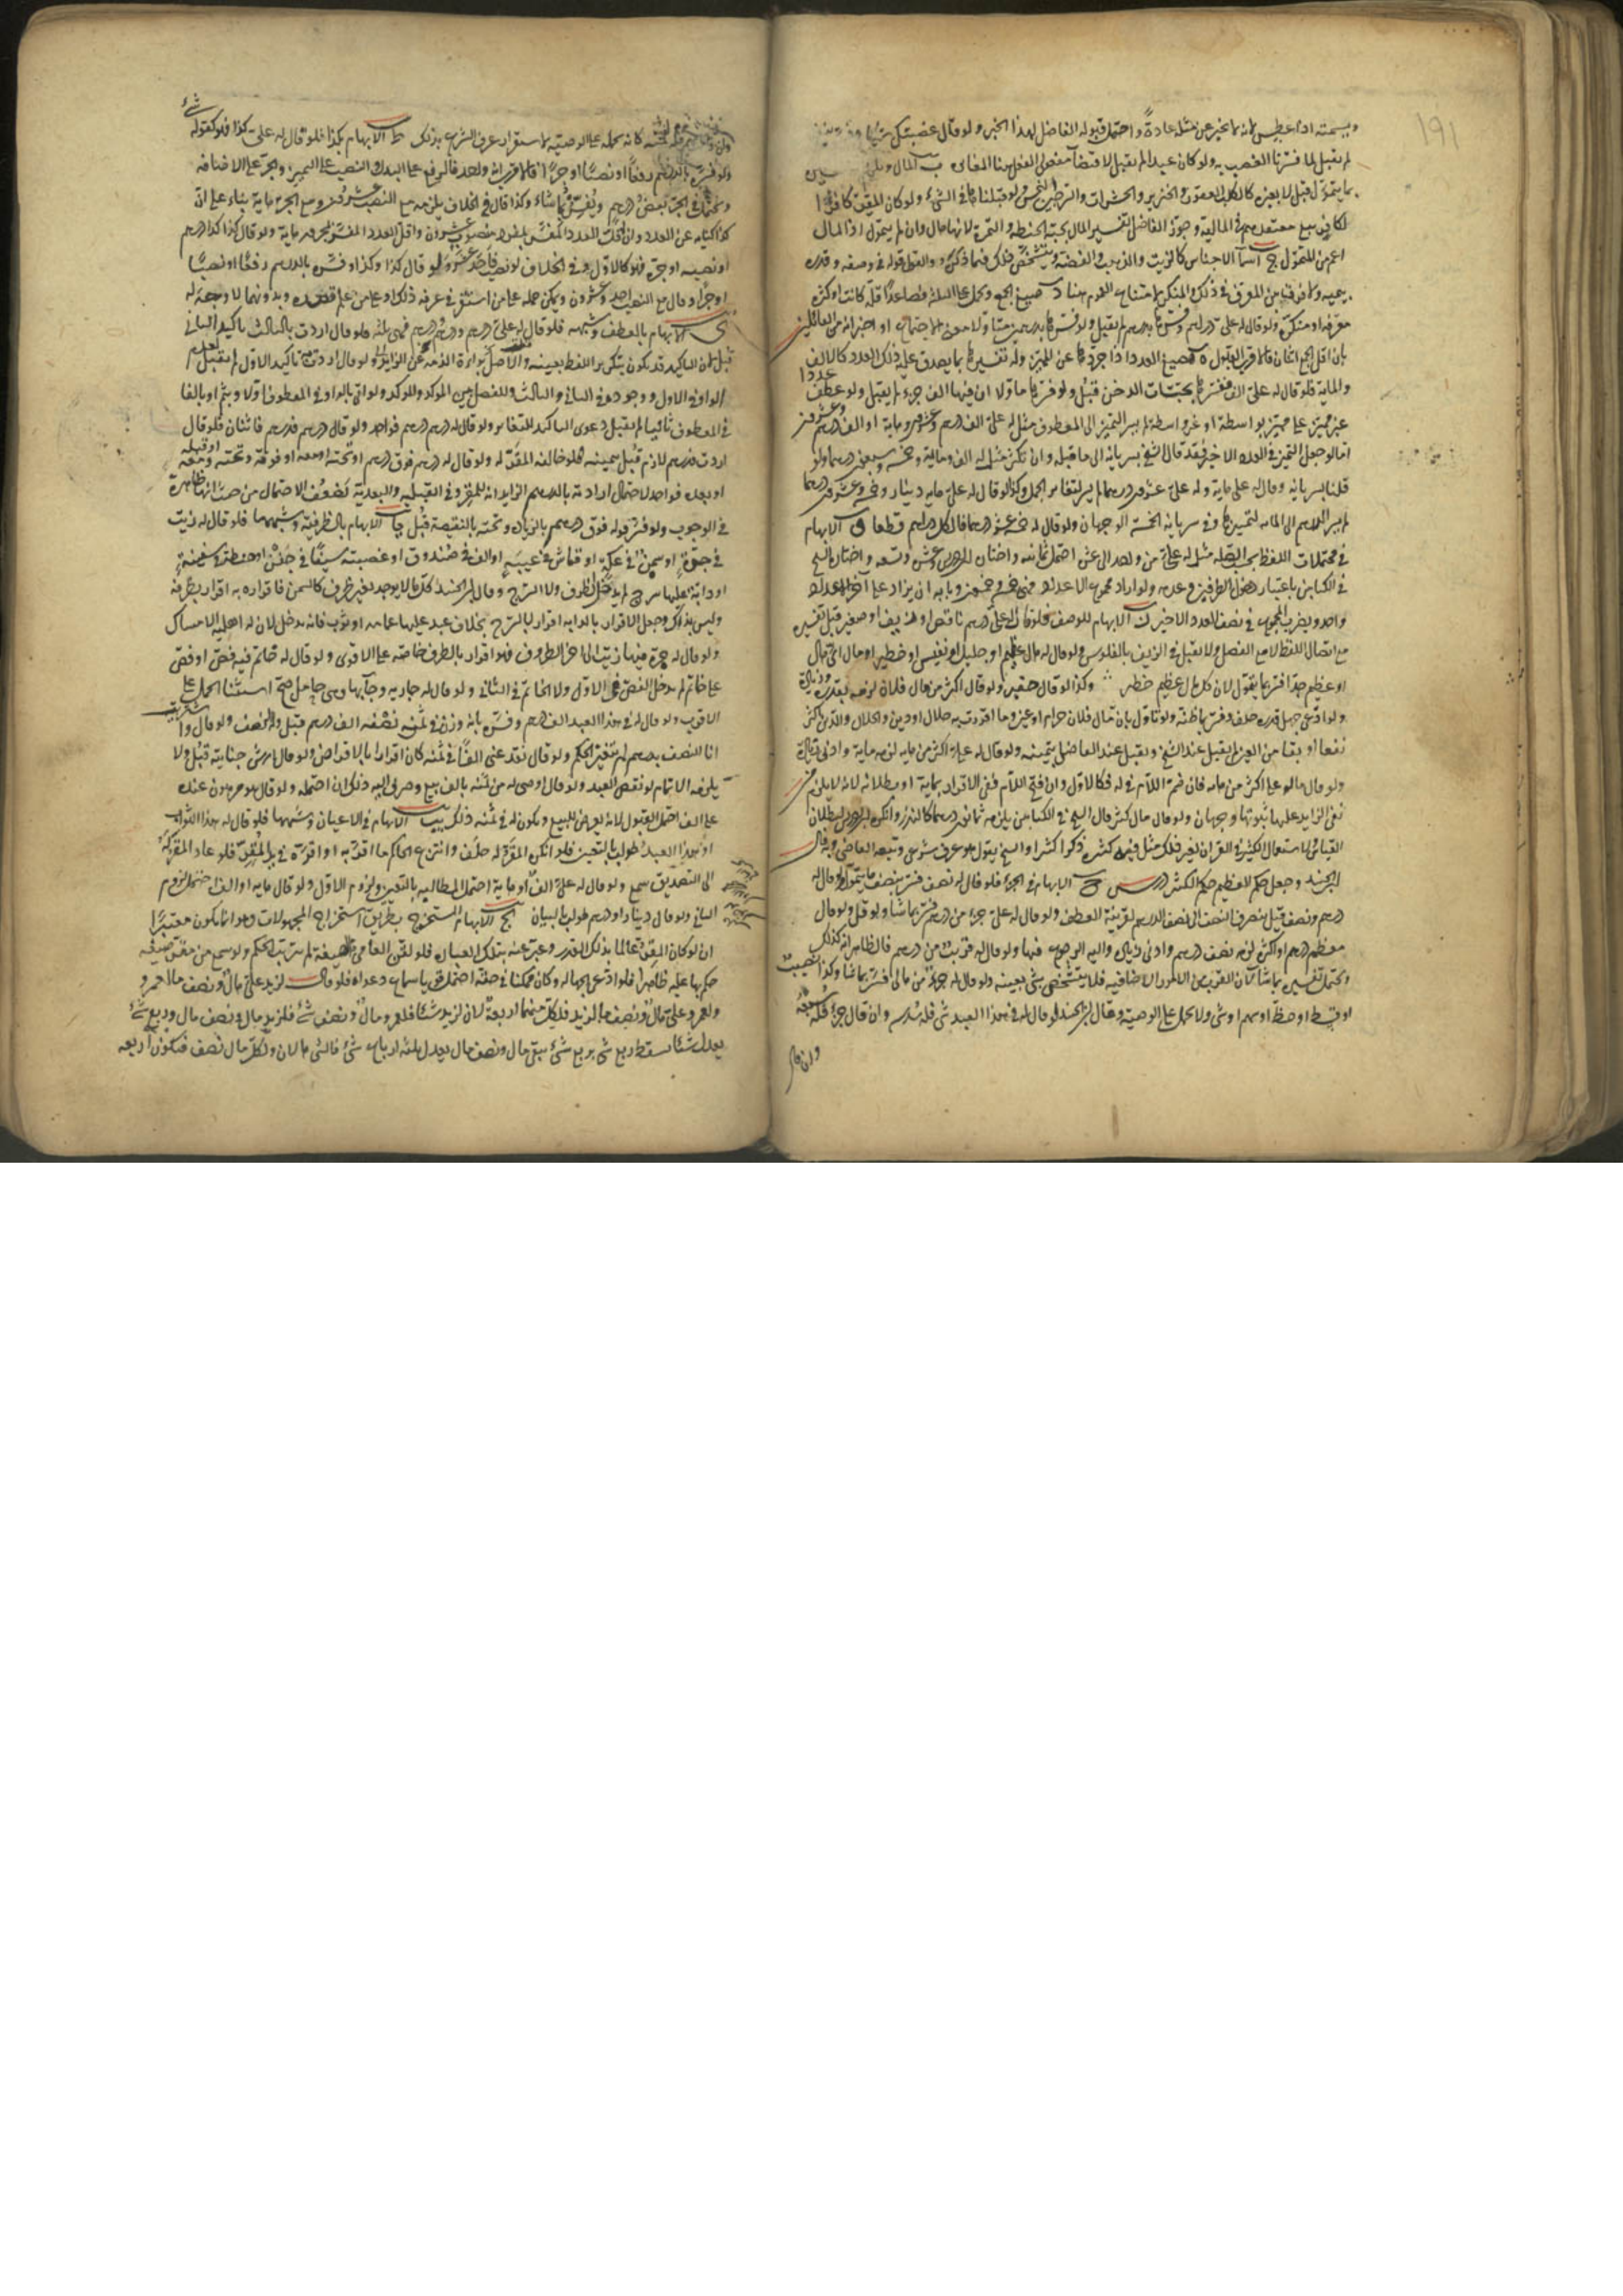 ويسمته اذا عطس لانه ما يخبر عن مثله عادة واحتمل قبوله الفاضل لهذا الخبر ولو قال غصبتك شيئا وفسره
لم يقبل لما فسرنا الغصب به ولو كان عبدا لم يقبل لاقتضاء مفعولى الفعل هنا المغايرة ب المال
بما يتمول قبل لا بغيره كالكلب العقور والخنزير والحشرات والسرجين النجس ولو قبلنا هما فى الشئ ولو كان المقر كافرا
لكافر تبع معتقدهم فى المالية وجوز الفاضل تفسير المال بحبة الحنطة والتمرة لانها مال وان لم يتمول اذ المال
اعم من المتمول ج اسماء الاجناس كالزيت والذهب والفضة ويتشخص ذلك فيما ذكره والقول قوله فى وصفه وقدره
بيمينه ولا فرق بين المعرف فى ذلك والمنكر لامتناع العموم هنا د صيغ الجمع ويحمل على الثلاثة فصاعدا قلة كانت او كثرة
معرفة او منكرة ولو قال له على دراهم وفسرها بدرهم لم يقبل ولو فسرها بدرهمين متأولا معنى الاجتماع او اخبر انه من القائلين
بان اقل الجمع اثنان فالاقرب القبول ه صيغ العدد اذا جردها عن المميز وله تفسيرها بما يصدق عليه ذلك العدد كالالف
والمائة فلو قال له على الف ففسرها بحبات الدخن قبل ولو فسرها متأولا ان فيها الف جزء لم يقبل ولو عطف عددا
غير مميز على مميز بواسطة او غير واسطة لم يسر التمييز الى المعطوف مثل له على الف درهم وعشرون ومائة او الف درهم وعشرون
اما لو جعل التمييز فى العدد الاخير فقد قال الشيخ بسريانه الى ما قبله وان تكثر مثل له الف ومائة وخمسة وسبعون درهما ولو
قلنا بسريانه وقال له على مائة وله على عشرون درهما لم يسر لتغاير الجمل وكذا لو قال له على مائة دينار وخمسة وعشرون درهما
لم يسر الدرهم الى المائة لتمييزها وفى سريانه الى الخمسة الوجهان ولو قال له خمسة عشر درهما فالكل دراهم قطعا و الابهام
فى محتملات اللفظ بحسب الصلة مثل له على من واحد الى عشرة احتمل ثمانية واختاره ابن ادريس وعشرة وتسعة واختاره الشيخ
فى الكتابين باعتبار دخول الطرفين وعدمه ولو اراد مجموع الاعداد فهى خمسة وخمسون وبابه ان يزاد على اخر الاعداد
واحد ويضرب المجموع فى نصف العدد الاخير ز الابهام للوصف فلو قال له على درهم ناقص او زيف او صغير قبل تفسيره
مع اتصال اللفظ لا مع الفصل ولا يقبل فى الزيف بالفلوس ولو قال له مال عظيم او جليل او نفيس او خطير او مال اى مال
او عظيم جدا فسر بما يقول لان كل مال عظيم خطر وكذا لو قال حقير ولو قال اكثر من مال فلان لزمه بقدره وزيادة
ولو ادعى جهل قدره حلف وفسر بما ظنه ولو تأول بان مال فلان حرام او عين وما اقررت به حلال او دين والحلال والدين اكثر
نفعا او بقاء من العين لم يقبل عند الشيخ ويقبل عند الفاضل بيمينه ولو قال له على اكثر من مائة لزمه مائة وادنى زيادة
ولو قال ما لو على اكثر من مائة فان ضم اللام فى له فكالاول وان فتح اللام ففى الاقرار بمائة او بطلانه لانه لا يلزم من
نفى الزايد عليها ثبوتها وجهان ولو قال مال كثير قال الشيخ فى الكتابين يلزمه ثمانون درهما كالنذر وانكره ابن ادريس لبطلان
القياس ولاستعمال الكثير فى القران لغير ذلك مثل فئة كثيرة ذكرا كثيرا والشيخ يقول هو عرف شرعى وتبعه القاضى وبه قال
ابن الجنيد وجعل حكم العظيم حكم الكثير ح الابهام فى الجزء فلو قال له نصف فسر بنصف ما يتمول ولو قال له
درهم ونصف قيل ينصرف النصف الى نصف الدرهم لقرينة العطف ولو قال له على جزء من درهم فسر بما شاء ولو قل ولو قال
معظم درهم او اكثره لزمه نصف درهم وادنى زيادة واليه الرجوع فيها ولو قال له قريب من درهم فالظاهر انه كذلك
ويحتمل تفسيره بما شاء لان القرب من الامور الاضافية فلا يتشخص بشئ بعينه ولو قال له جزء من مالى فسر بما شاء وكذا نصيب
او قسط او حظ او سهم او شئ ولا يحمل على الوصية وقال ابن الجنيد لو قال له فى هذا العبد شئ فله سدسه وان قال جزء فله سبعه
وان قال
كانه يحمله على الوصية لاستقرار عرف الشرع بذلك ط الابهام بكذا فلو قال له على كذا فلو كقوله شئ
ولو فسره بالدرهم رفعا او نصبا او جرا فالاقرب انه واحد فالرفع على البدل والنصب على التمييز والجر على الاضافة
ويحتمل فى الجر بعض درهم ويفسره بما شاء وكذا قال فى الخلاف يلزمه مع النصب عشرون ومع الجر مائة بناء على ان
كذا كناية عن العدد وان اقل العدد المفسر بمفرد منصوب عشرون واقل العدد المفسر بمجرور مائة ولو قال كذا كذا درهم
او نصبه او جره فهو كالاول وفى الخلاف لو نصب فاحد عشر ولو قال كذا وكذا وفسره بالدرهم رفعا او نصبا
او جرا وقال مع النصب احد وعشرون ويمكن حمله على من استقر فى عرفه ذلك او على من علم قصده وبدونهما لا وجه له
ى الابهام بالعطف وشبهه فلو قال له على درهم ودرهم ودرهم فهى ثلثة ولو قال اردت بالثالث تاكيد الثانى
قبل لان التاكيد قد يكون بتكرير اللفظ بعينه والاصل براءة الذمة عن الزايد ولو قال اردت به تاكيد الاول لم يقبل لعدم
الواو فى الاول ووجوده فى الثانى والثالث وللفصل بين المؤكد والمؤكد ولو اتى بالواو فى المعطوف اولا وبثم او بالفاء
فى المعطوف ثانيا لم يقبل دعوى التاكيد للتغاير ولو قال له درهم درهم درهم فواحد ولو قال درهم فدرهم فاثنان فلو قال
اردت فدرهم لازم قبل بيمينه فلو خالفه المقر له ولو قال له درهم فوق درهم او تحته او معه او فوقه وتحته ومعه او قبله
او بعده فواحد لاحتمال ارادته بالدرهم الزايد انه للمقر وفى القبلية والبعدية يضعف الاحتمال من حيث انها ظاهرة
فى الوجوب ولو فسر قوله فوق درهم بالزيادة وتحته بالنقيصة قبل يا الابهام بالظرفية وشبهها فلو قال له زيت
فى جرة او سمن فى عكة او قماش فى عيبة او الف فى صندوق او غصبته سيفا فى جفن او حنطة فى سفينة
او دابة عليها سرج لم يدخل الظرف ولا السرج وقال ابن الجنيد كل ما لا يوجد بغير ظرف كالسمن فاقراره به اقرار بظرفه
وليس بذاك وجعل الاقرار بالدابة اقرارا بالسرج بخلاف عبد عليه عمامة او ثوب فانه يدخل لان له اهلية الامساك
ولو قال له جرة فيها زيت الى اخر الظروف فهو اقرار بالظرف خاصة على الاقوى ولو قال له خاتم فيه فص او فص
على خاتم لم يدخل الفص فى الاول ولا الخاتم فى الثانى ولو قال له جارية وجاء بها وهى حامل صح استثناء الحمل على
الاقرب ولو قال له فى هذا العبد الف درهم وفسره بانه وزن فى ثمنه نصفه الف درهم قبل وله نصف ولو قال واشتريت
انا النصف بدرهم لم يتغير الحكم ولو قال نقد عنى الفا فى ثمنه كان اقرارا بالاقراض ولو قال ارش جناية قبل ولا
يلزمه الاتمام لو نقص العبد ولو قال اوصى له من ثمنه بالف بيع وصرف اليه ذلك ان احتمله ولو قال هو مرهون عنده
على الف احتمل القبول لانه يعرض للبيع ويكون له فى ثمنه ذلك يب الابهام فى الاعيان وشبهها فلو قال له هذا الثوب
او هذا العبد طولب بالتعيين فلو انكره المقر له حلف وانتزع الحاكم ما اقر به او اقره فى يد المقر فلو عاد المقر له
الى التصديق سمع ولو قال له على الف او مائة احتمل المطالبة بالتعيين ولزوم الاول ولو قال مائة او الف احتمل لزوم
الثانى ولو قال دينار او درهم طولب بالبيان يج الابهام المستخرج بطريق استخراج المجهولات وهو انما يكون معتبرا
ان لو كان المقر عالما بذلك القدر وعبر عنه بتلك العبارة فلو لقن العامى الصيغة لم يترتب الحكم ولو سمع من مقر صيغة
حكم بها عليه ظاهرا فلو ادعى الجهالة وكان ممكنا فى حقه احتمل قويا سماع دعواه فلو قال لزيد على مال ونصف ما لعمرو
ولعمرو على مال ونصف ما لزيد فلكل منهما اربعة لان لزيد شيئا فلعمرو مال ونصف شئ فلزيد مال ونصف مال وربع شئ
يعدل شيئا يسقط ربع شئ بربع شئ يبقى مال ونصف مال يعدل ثلثة ارباع شئ فالشئ مالان ولكل مال نصف فتكون اربعة